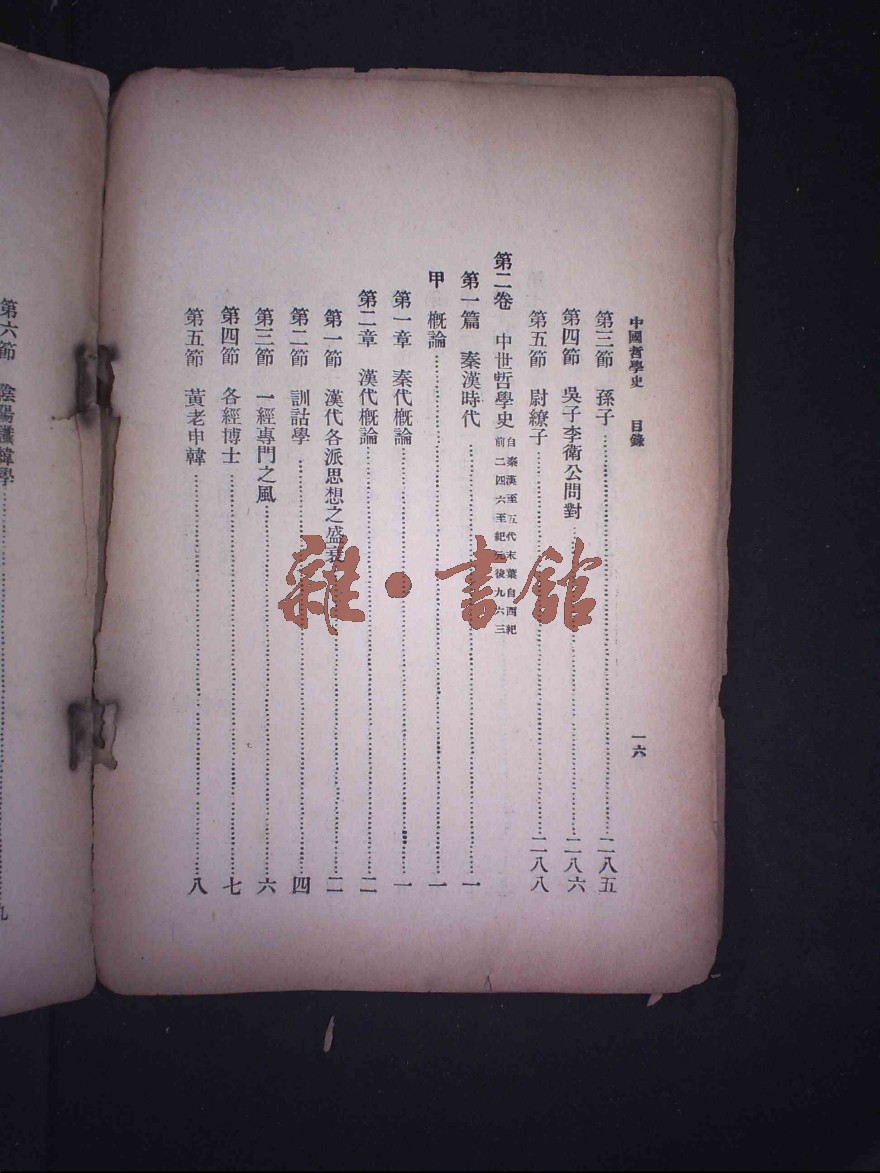 中國哲學史　目錄　一六
第三節　孫子……二八五
第四節　吳子李衛公問對……二八六
第五節　尉繚子……二八八
第二卷　中世哲學史　自秦漢至五代末葉自西紀
前二四六至紀元後九六三
第一篇　秦漢時代……一
甲　概論……一
第一章　秦代概論……一
第二章　漢代概論……二
第一節　漢代各派思想之盛衰……二
第二節　訓詁學……四
第三節　一經專門之風……六
第四節　各經博士……七
第五節　黃老申韓……八
第六節　陰陽讖緯學……九
雜·書館